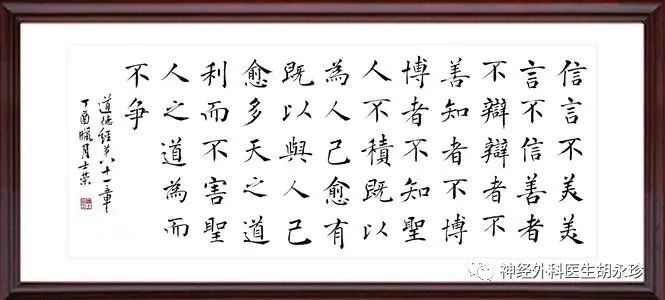 信言不美美
言不信善者
不辯辯者不
善知者不博
博者不知聖
人不積既以
為人己愈有
既以與人己
愈多天之道
利而不害聖
人之道為而
不争
道德經第八十一章
丁酉臘月士榮
神经外科医生胡永珍